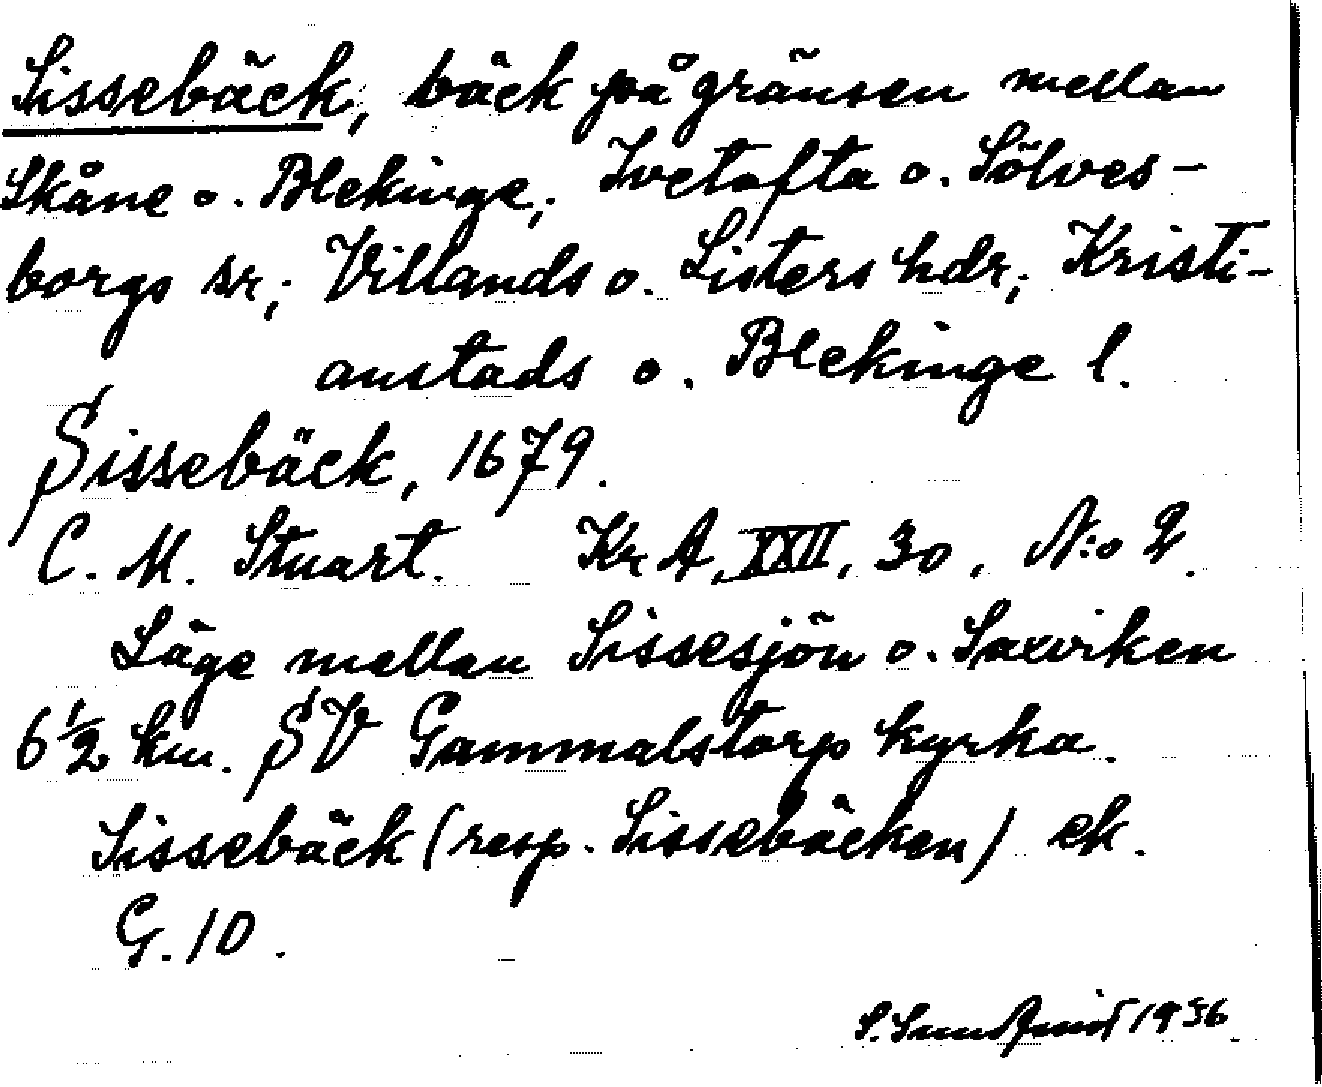 Sissebäck, bäck på gränsen mellan
Skåne o. Blekinge, Ivetofta o. Sölves-
borgs sr; Villands o. Listers hdr; Kristi-
anstads o. Blekinge l.
Sissebäck, 1679.
C. M. Stuart. Kr A, XXII, 30, N:o 2.
Läge mellan Sissesjön o. Saxviken
6 1/2 km. SV Gammalstorp kyrka.
Sissebäck (resp. Sissebäcken) ek.
G. 10.
S. Sundquist 1936